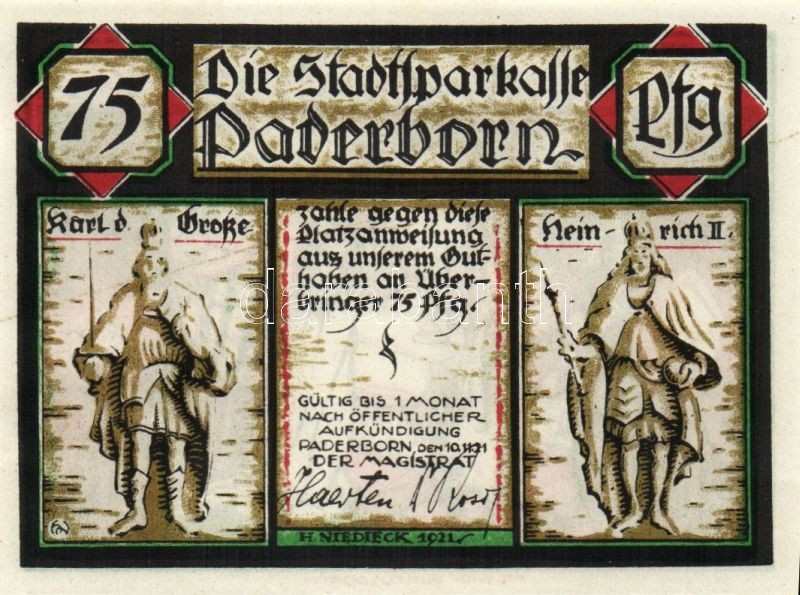 75
Die Stadtsparkasse
Paderborn
Pfg
Karl d. Große
zahle gegen diese
Platzanweisung
aus unserem Gut-
haben an Über-
bringer 75 Pfg.
Hein- rich II.
GÜLTIG BIS 1 MONAT
NACH ÖFFENTLICHER
AUFKÜNDIGUNG
PADERBORN, DEN 10.11.21
DER MAGISTRAT
Haerten
H. NIEDIECK 1921
darabanth